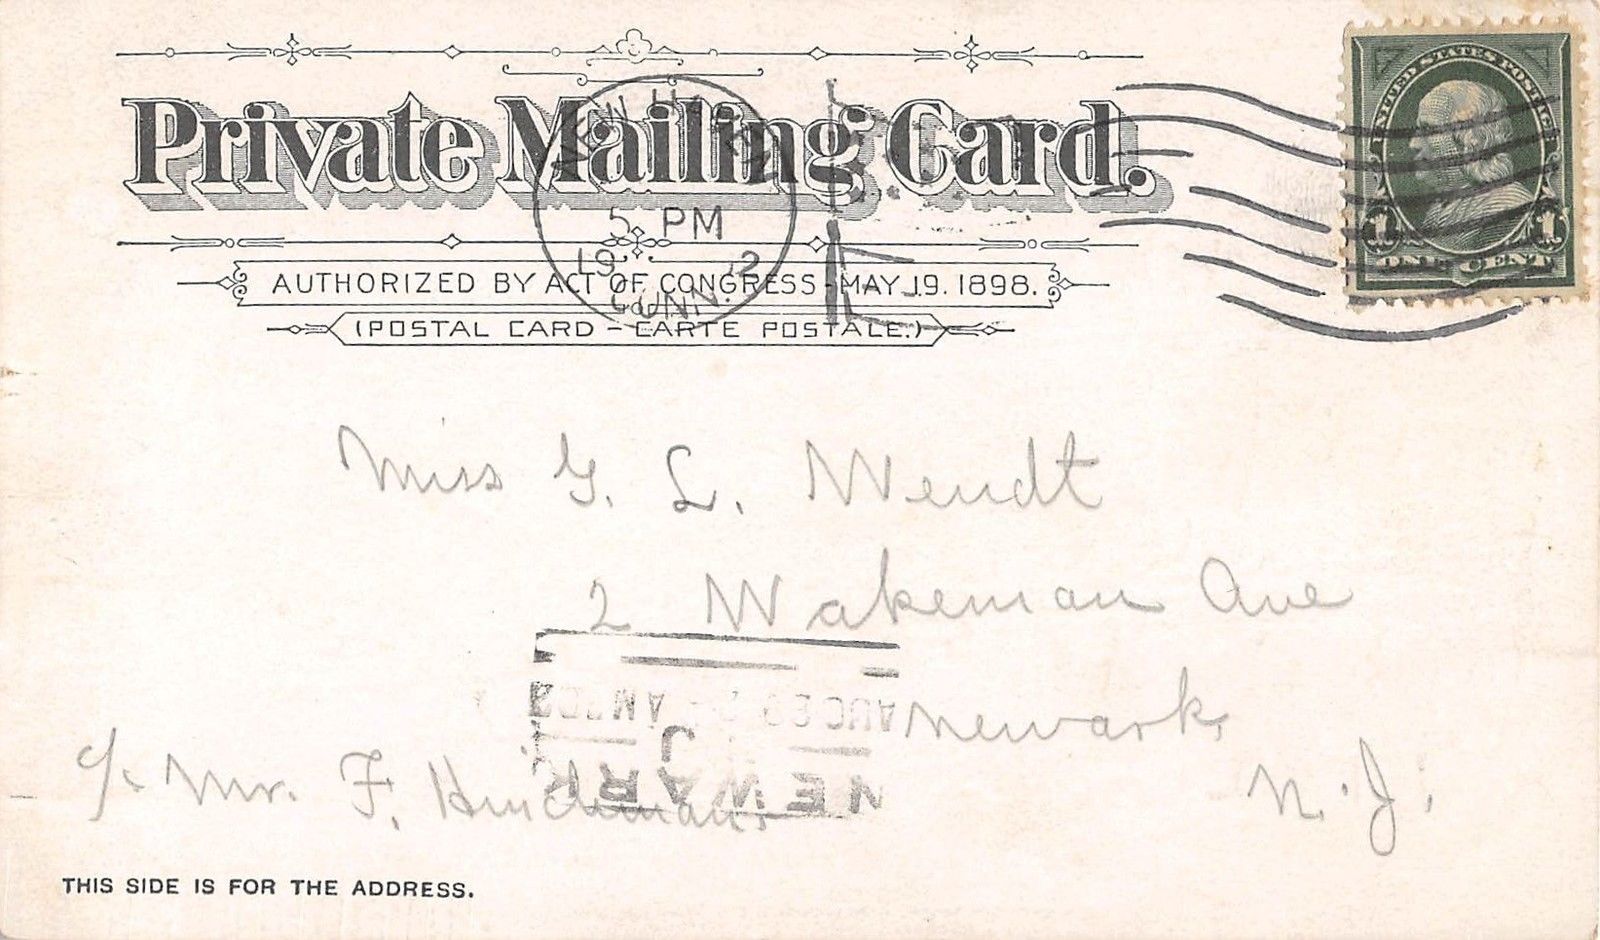 Private Mailing Card.
AUTHORIZED BY ACT OF CONGRESS - MAY 19. 1898.
(POSTAL CARD - CARTE POSTALE.)
NEW HAVEN
5 PM
19
CONN.
UNITED STATES POSTAGE
1 1
ONE CENT
Miss G. L. Wendt
2 Wakeman Ave
Newark,
N. J.
c/o Mr. F. Hinchman,
NEWARK
J
AUG 29
AM
THIS SIDE IS FOR THE ADDRESS.